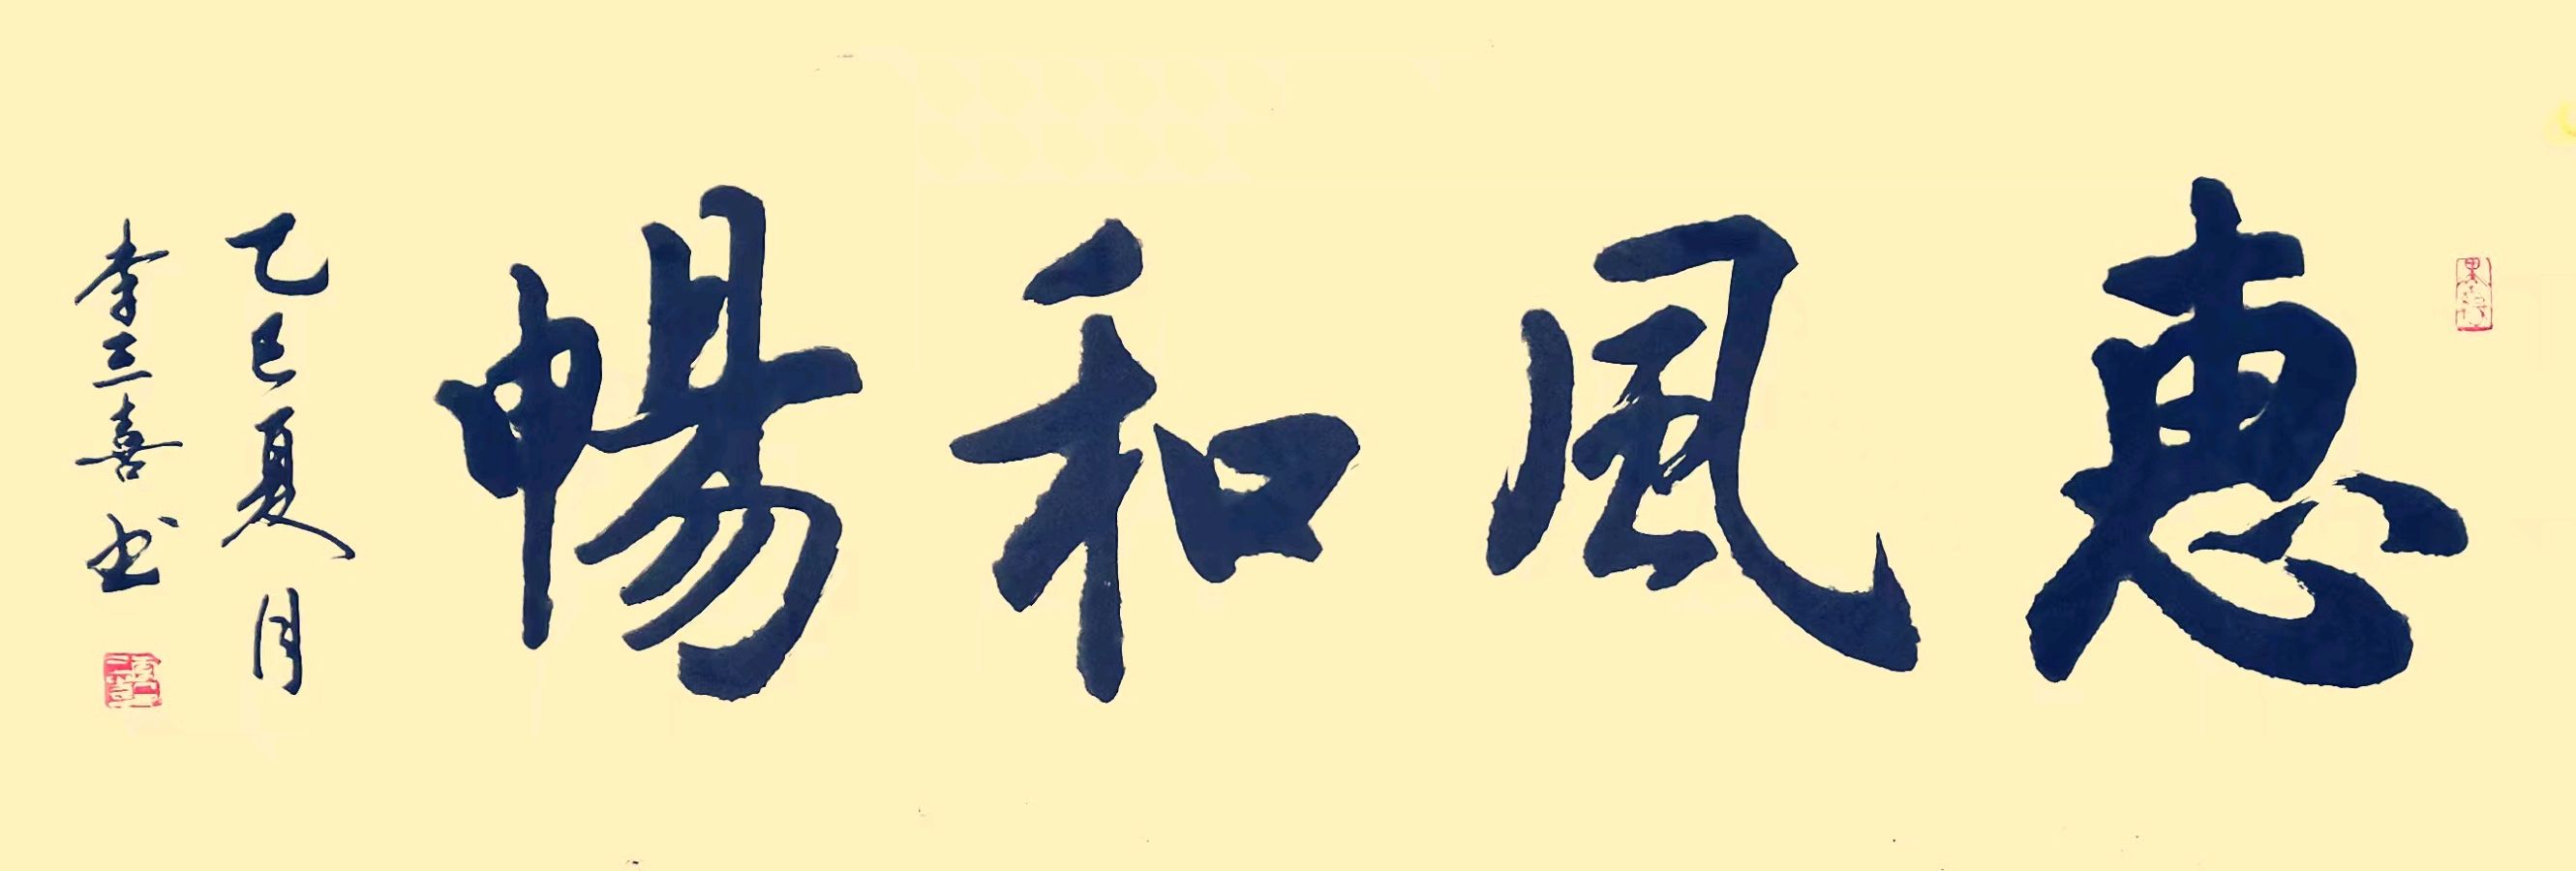 惠風和暢
乙巳夏月
李三喜书